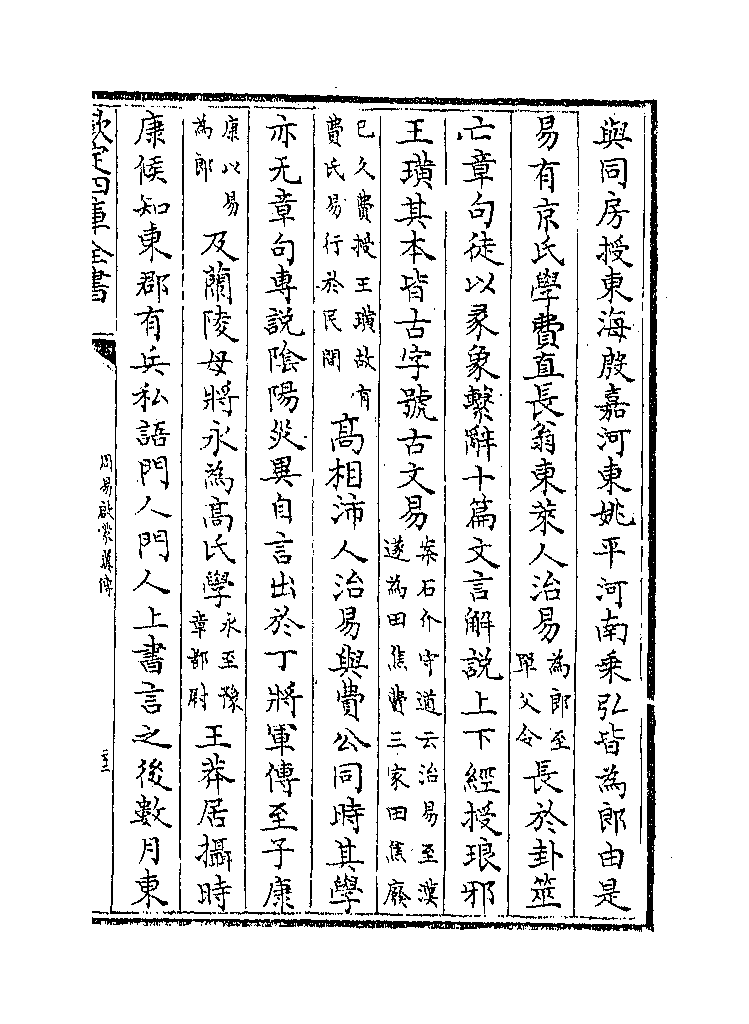 與同房授東海殷嘉河東姚平河南乘弘皆為郎由是
易有京氏學費直長翁東萊人治易為郎至單父令長於卦筮
亡章句徒以彖象繫辭十篇文言解説上下經授琅邪
王璜其本皆古字號古文易案石介守道云治易至漢遂為田焦費三家田焦廢
已久費授王璜故有費氏易行於民間高相沛人治易與費公同時其學
亦无章句専説陰陽災異自言出於丁將軍傳至子康
康以易為郎及蘭陵毋將永為髙氏學永至豫章都尉王莽居攝時
康候知東郡有兵私語門人門人上書言之後數月東
欽定四庫全書
周易啟蒙翼傳